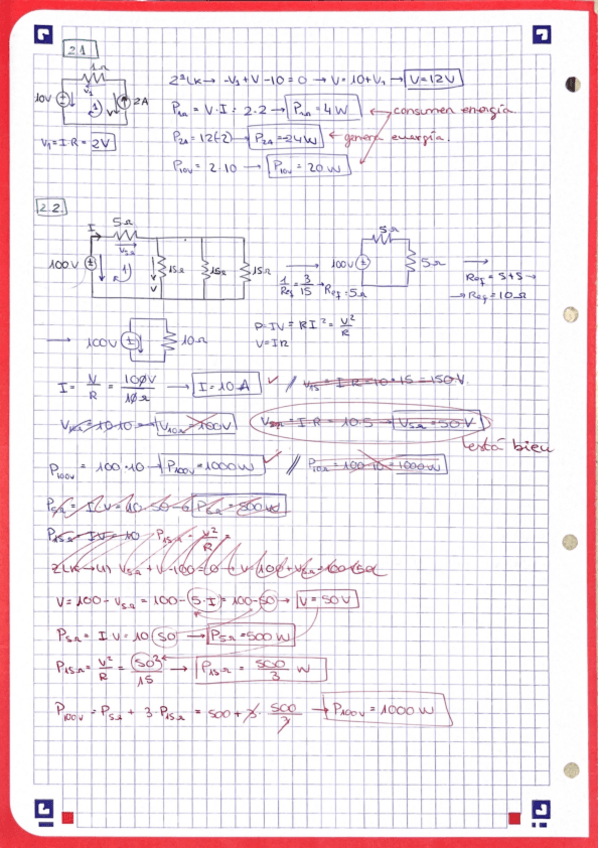 2.1
1Ω
V₁
10V
1
V
2A
V₁ = I·R = 2V
2ªLK → -V₁ + V - 10 = 0 → V = 10 + V₁ → V = 12V
P₁Ω = V·I = 2·2 → P₁Ω = 4W ← consumen energía.
P₂A = 12(-2) → P₂A = -24W ← genera energía.
P₁₀V = 2·10 → P₁₀V = 20W
2.2.
I 5Ω
V₅Ω
100V
1)
V
15Ω 15Ω 15Ω
1/Req = 3/15 → Req = 5Ω
5Ω
100V 5Ω
Req = 5+5 →
→ Req = 10Ω
→ 100V 10Ω
P = IV = RI² = V²/R
V = IR
I = V/R = 100V/10Ω → I = 10A ✓ // V₁₅ = I·R = 10·15 = 150V
V₁₀Ω = 10·10 → V₁₀Ω = 100V
V₅Ω = I·R = 10·5 → V₅Ω = 50V
está bien
P₁₀₀V = 100·10 → P₁₀₀V = 1000W ✓ // P₁₀Ω = 100·10 = 1000W
P₅Ω = I·V = 10·50 → P₅Ω = 500W
P₁₅Ω = I·V = 10 P₁₅Ω = V²/R =
2LK → (1) V₅Ω + V - 100 = 0 →
V = 100 - V₅Ω = 100 - (5·I) = 100 - 50 → V = 50V
P₅Ω = I·V = 10(50) → P₅Ω = 500W
P₁₅Ω = V²/R = (50)²/15 → P₁₅Ω = 500/3 W
P₁₀₀V = P₅Ω + 3·P₁₅Ω = 500 + 3·500/3 → P₁₀₀V = 1000W